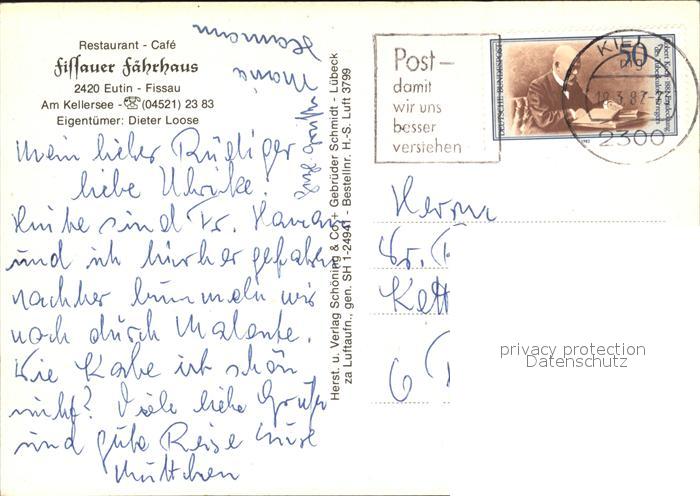 Restaurant - Café
Fissauer Fährhaus
2420 Eutin - Fissau
Am Kellersee - ☎ (04521) 23 83
Eigentümer: Dieter Loose
Mein lieber Rüdiger
liebe Ulrike.
Heute sind Fr.
und ich hierher gefahren
nachher bummeln wir
noch durch Malente.
Die Karte ist schön
nicht? Viele liebe Grüße
und gute Reise Eure
Muttchen
Herst. u. Verlag Schöning & Co + Gebrüder Schmidt - Lübeck
za Luftaufn., gen. SH 1-24941 - Bestellnr. H.-S. Luft 3799
Post-
damit
wir uns
besser
verstehen
DEUTSCHE BUNDESPOST
50
KIEL
2300
Herrn
Dr.
privacy protection
Datenschutz